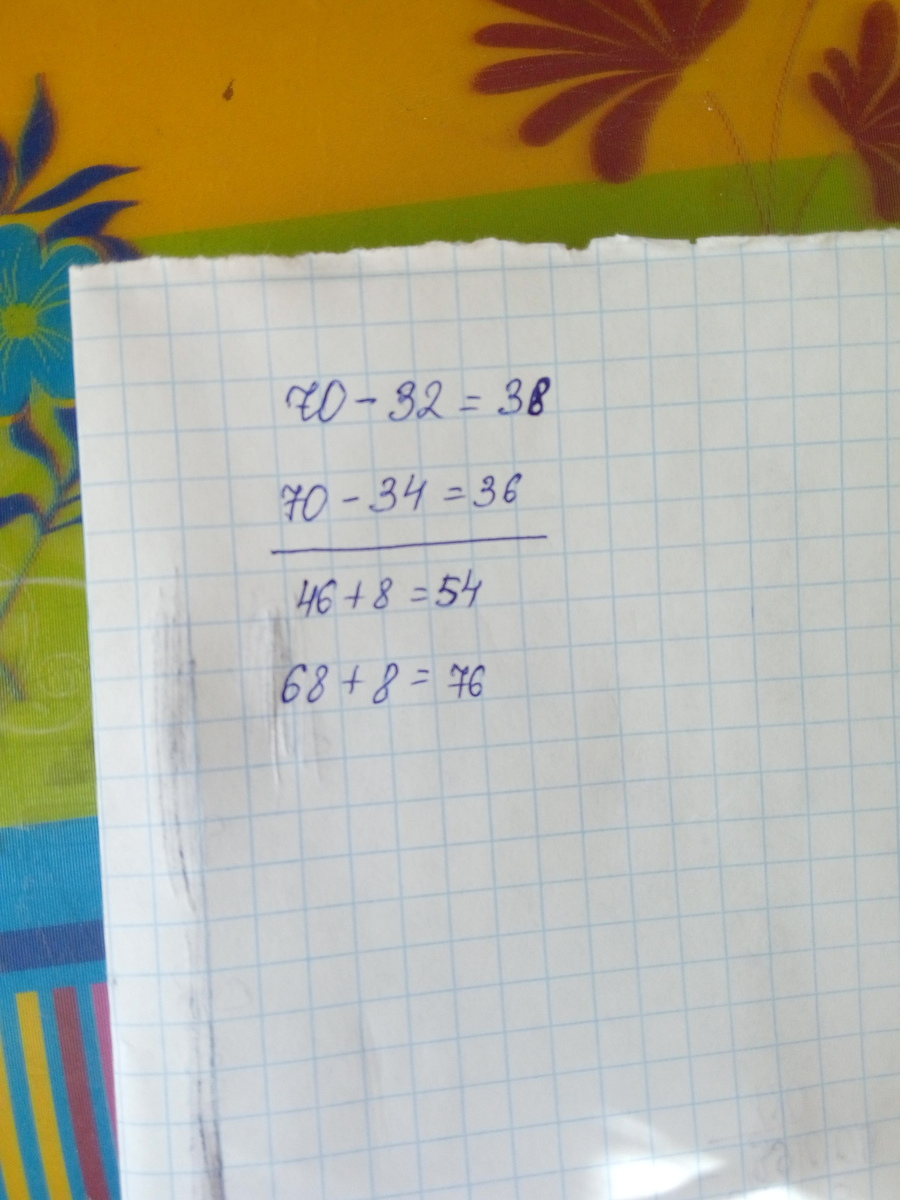 70 - 32 = 38
70 - 34 = 36
46 + 8 = 54
68 + 8 = 76